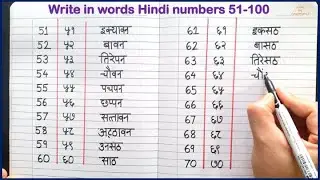 Write in words Hindi numbers 51-100
51 ५१ इक्यावन
52 ५२ बावन
53 ५३ तिरेपन
54 ५४ चौवन
55 ५५ पचपन
56 ५६ छप्पन
57 ५७ सत्तावन
58 ५८ अट्ठावन
59 ५९ उनसठ
60 ६० साठ
61 ६१ इकसठ
62 ६२ बासठ
63 ६३ तिरेसठ
64 ६४ चौं
65 ६५
66 ६६
67 ६७
68 ६८
69 ६९
70 ७०